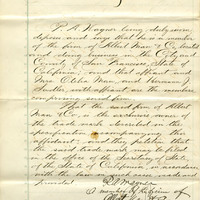 P. A. Wagner being duly sworn,
deposes and says that he is a member
of the firm of Albert Mau & Co. doing
business in the City and
County of San Francisco, State of
California; and that affiant and
Mrs. Celia Mau and Herman J.
Sadler with affiant are the members
composing said firm.
That the said firm of Albert
Mau & Co. is the exclusive owner of
the trade mark described in the
specification accompanying this
affidavit, and they petition that
the said trade mark may be filed
in the office of the Secretary of State
of the State of California in accordance
with the law in such case made and
provided.
P A Wagner
A member of the firm of
Albert Mau & Co